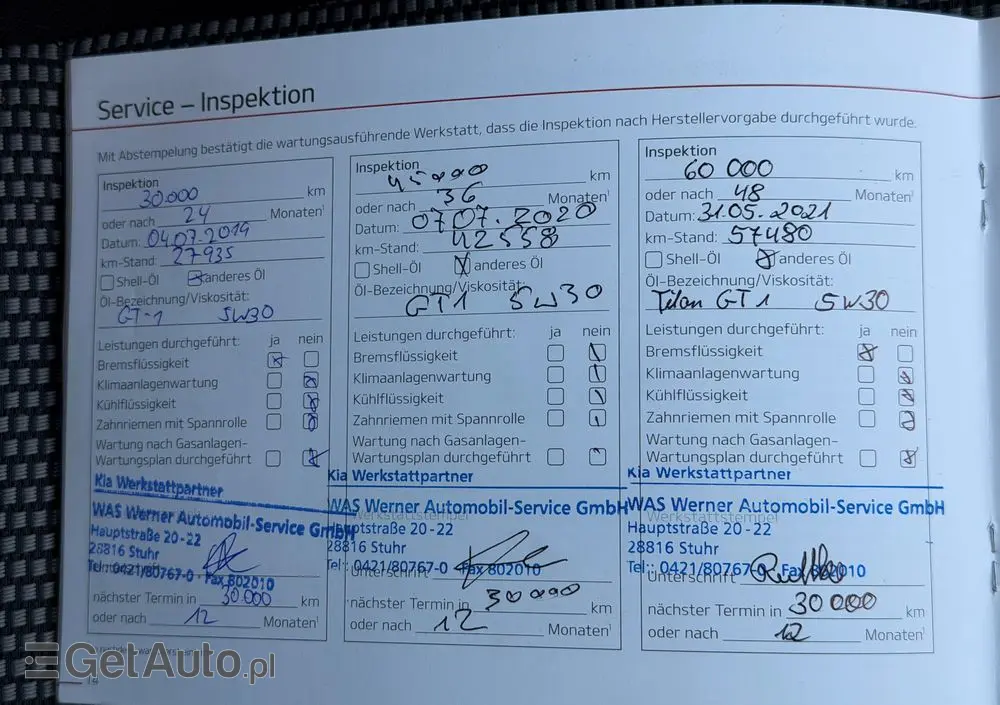 Service – Inspektion
Mit Abstempelung bestätigt die wartungsausführende Werkstatt, dass die Inspektion nach Herstellervorgabe durchgeführt wurde.
Inspektion
30.000 km
oder nach 24 Monaten¹
Datum: 04.07.2019
km-Stand: 27935
Shell-Öl anderes Öl
Öl-Bezeichnung/Viskosität:
GT-1 5W30
Leistungen durchgeführt: ja nein
Bremsflüssigkeit
Klimaanlagenwartung
Kühlflüssigkeit
Zahnriemen mit Spannrolle
Wartung nach Gasanlagen-
Wartungsplan durchgeführt
Kia Werkstattpartner
WAS Werner Automobil-Service GmbH
Hauptstraße 20-22
28816 Stuhr
Tel.: 0421/80767-0 · Fax 802010
nächster Termin in 30.000 km
oder nach 12 Monaten¹
Inspektion
45000 km
oder nach 36 Monaten¹
Datum: 07.07.2020
km-Stand: 42558
Shell-Öl anderes Öl
Öl-Bezeichnung/Viskosität:
GT1 5W30
Leistungen durchgeführt: ja nein
Bremsflüssigkeit
Klimaanlagenwartung
Kühlflüssigkeit
Zahnriemen mit Spannrolle
Wartung nach Gasanlagen-
Wartungsplan durchgeführt
Kia Werkstattpartner
WAS Werner Automobil-Service GmbH
Werkstattstempel
Hauptstraße 20-22
28816 Stuhr
Tel.: 0421/80767-0 · Fax 802010
Unterschrift
nächster Termin in 30000 km
oder nach 12 Monaten¹
Inspektion
60 000 km
oder nach 48 Monaten¹
Datum: 31.05.2021
km-Stand: 57480
Shell-Öl anderes Öl
Öl-Bezeichnung/Viskosität:
Titan GT1 5W30
Leistungen durchgeführt: ja nein
Bremsflüssigkeit
Klimaanlagenwartung
Kühlflüssigkeit
Zahnriemen mit Spannrolle
Wartung nach Gasanlagen-
Wartungsplan durchgeführt
Kia Werkstattpartner
WAS Werner Automobil-Service GmbH
Werkstattstempel
Hauptstraße 20-22
28816 Stuhr
Tel.: 0421/80767-0 · Fax 802010
Unterschrift
nächster Termin in 30000 km
oder nach 12 Monaten¹
GetAuto.pl